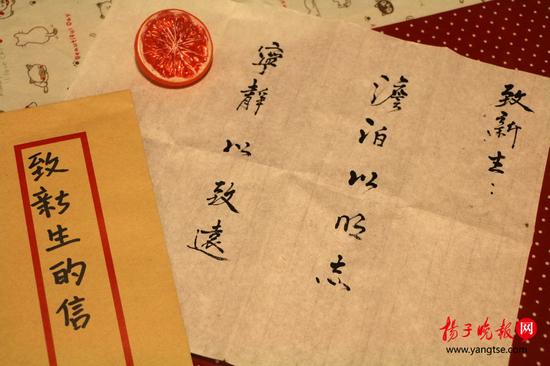 致新生：
澹泊以明志
寧靜以致遠
致新生的信
Beautiful Day
揚子晚報网
www.yangtse.com